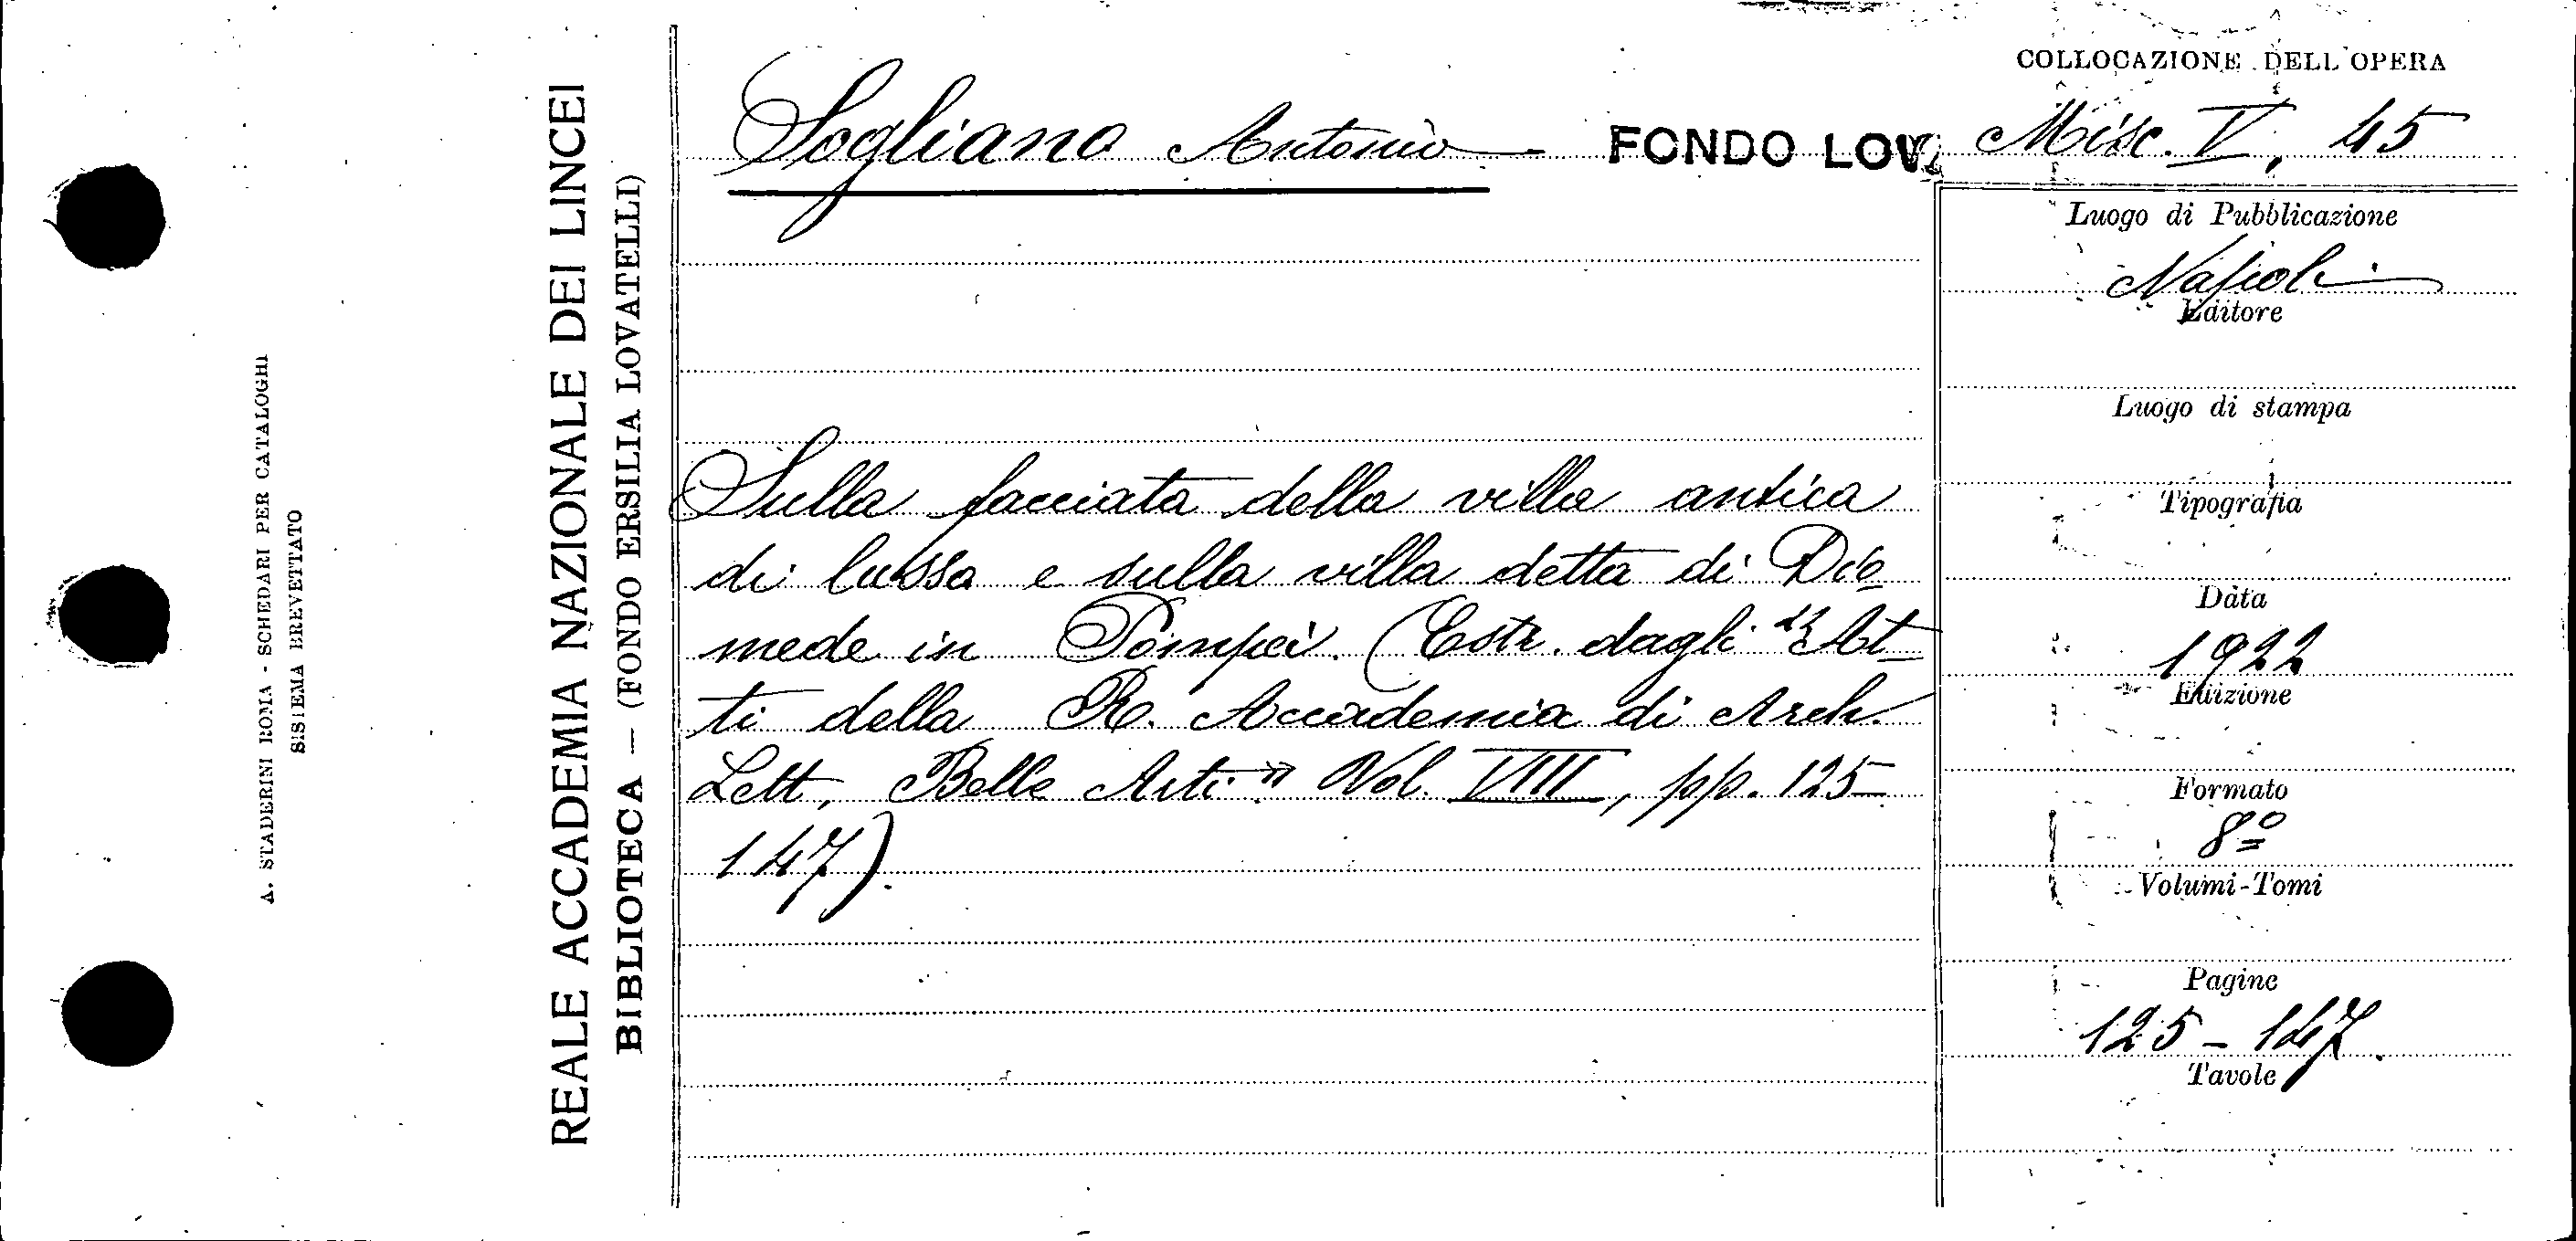 COLLOCAZIONE DELL'OPERA
Sogliano Antonio FONDO LOV. Misc. V, 45
Luogo di Pubblicazione
Napoli
Editore
Luogo di stampa
Tipografia
Data
1922
Edizione
Formato
8º
Volumi-Tomi
Pagine
125-147.
Tavole
Sulla facciata della villa antica
di lusso e sulla villa detta di Dio-
mede in Pompei. (Estr. dagli "At-
ti della R. Accademia di Arch.
Lett, Belle Arti" Vol. VIII, pp. 125-
147).
REALE ACCADEMIA NAZIONALE DEI LINCEI
BIBLIOTECA — (FONDO ERSILIA LOVATELLI)
A. STADERINI ROMA - SCHEDARI PER CATALOGHI
SISTEMA BREVETTATO